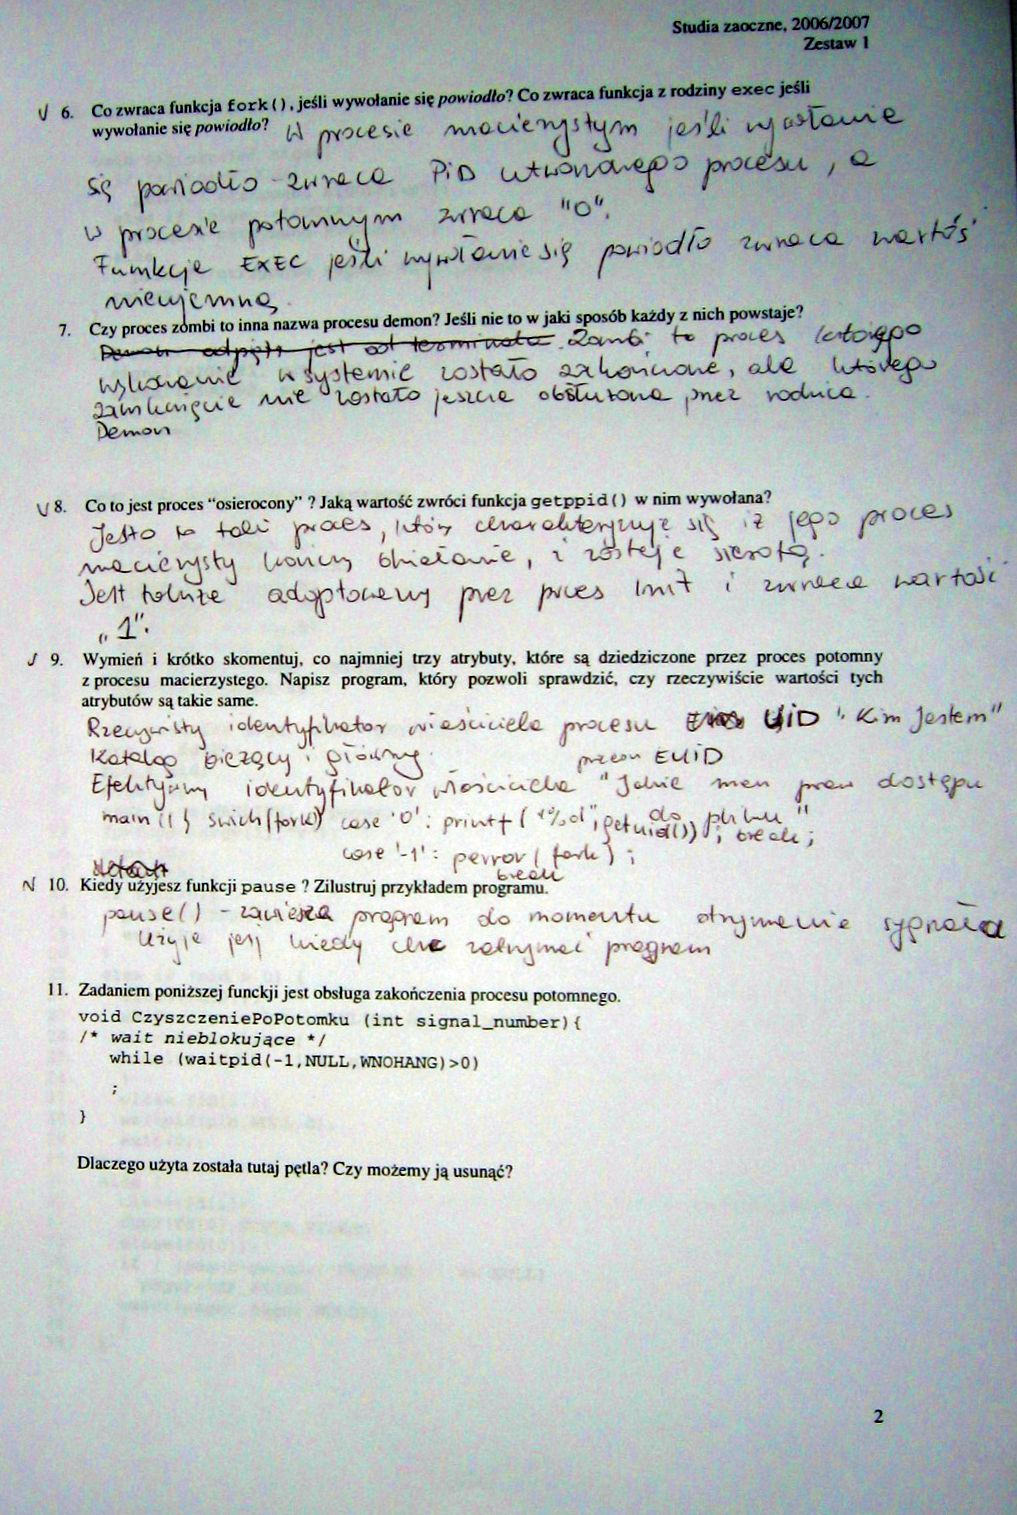 Studia zaoczne, 2006/2007
Zestaw 1
6. Co zwraca funkcja fork(), jeśli wywołanie się powiodło? Co zwraca funkcja z rodziny exec jeśli
wywołanie się powiodło? W procesie macierzystym jeśli wywołanie
się powiodło zwraca PiD utworzonego procesu, a
w procesie potomnym zwraca "0".
Funkcje EXEC jeśli wywołanie się powiodło zwraca wartoś
nieujemną
7. Czy proces zombi to inna nazwa procesu demon? Jeśli nie to w jaki sposób każdy z nich powstaje?
jest od terminala Zombi to proces którego
wykonanie w systemie zostało zakończone, ale którego
zamknięcie nie zostało jeszcze obsłużone przez rodzica.
Demon
8. Co to jest proces “osierocony” ? Jaką wartość zwróci funkcja getppid() w nim wywołana?
Jest to taki proces, który charakteryzuje się iż jego proces
macierzysty kończy działanie, i zostaje sierotą.
Jest także adoptowany przez proces Init i zwraca wartość
„1".
9. Wymień i krótko skomentuj, co najmniej trzy atrybuty, które są dziedziczone przez proces potomny
z procesu macierzystego. Napisz program, który pozwoli sprawdzić, czy rzeczywiście wartości tych
atrybutów są takie same.
Rzeczywisty identyfikator właściciela procesu UiD "Kim Jestem"
Katalog bieżący i główny
procesu EUiD
Efektywny identyfikator właściciela "Jakie mam prawa dostępu
do pliku"
main () { swich(fork) case '0': printf("%d", getuid()); break;
case '-1': perror(fork);
break
10. Kiedy użyjesz funkcji pause ? Zilustruj przykładem programu.
pause() - zawiesza program do momentu otrzymania sygnała
Użyje jej kiedy chce zatrzymać program
11. Zadaniem poniższej funckji jest obsługa zakończenia procesu potomnego.
void CzyszczeniePoPotomku (int signal_number){
/* wait nieblokujące */
while (waitpid(-1,NULL,WNOHANG)>0)
;
}
Dlaczego użyta została tutaj pętla? Czy możemy ją usunąć?
2